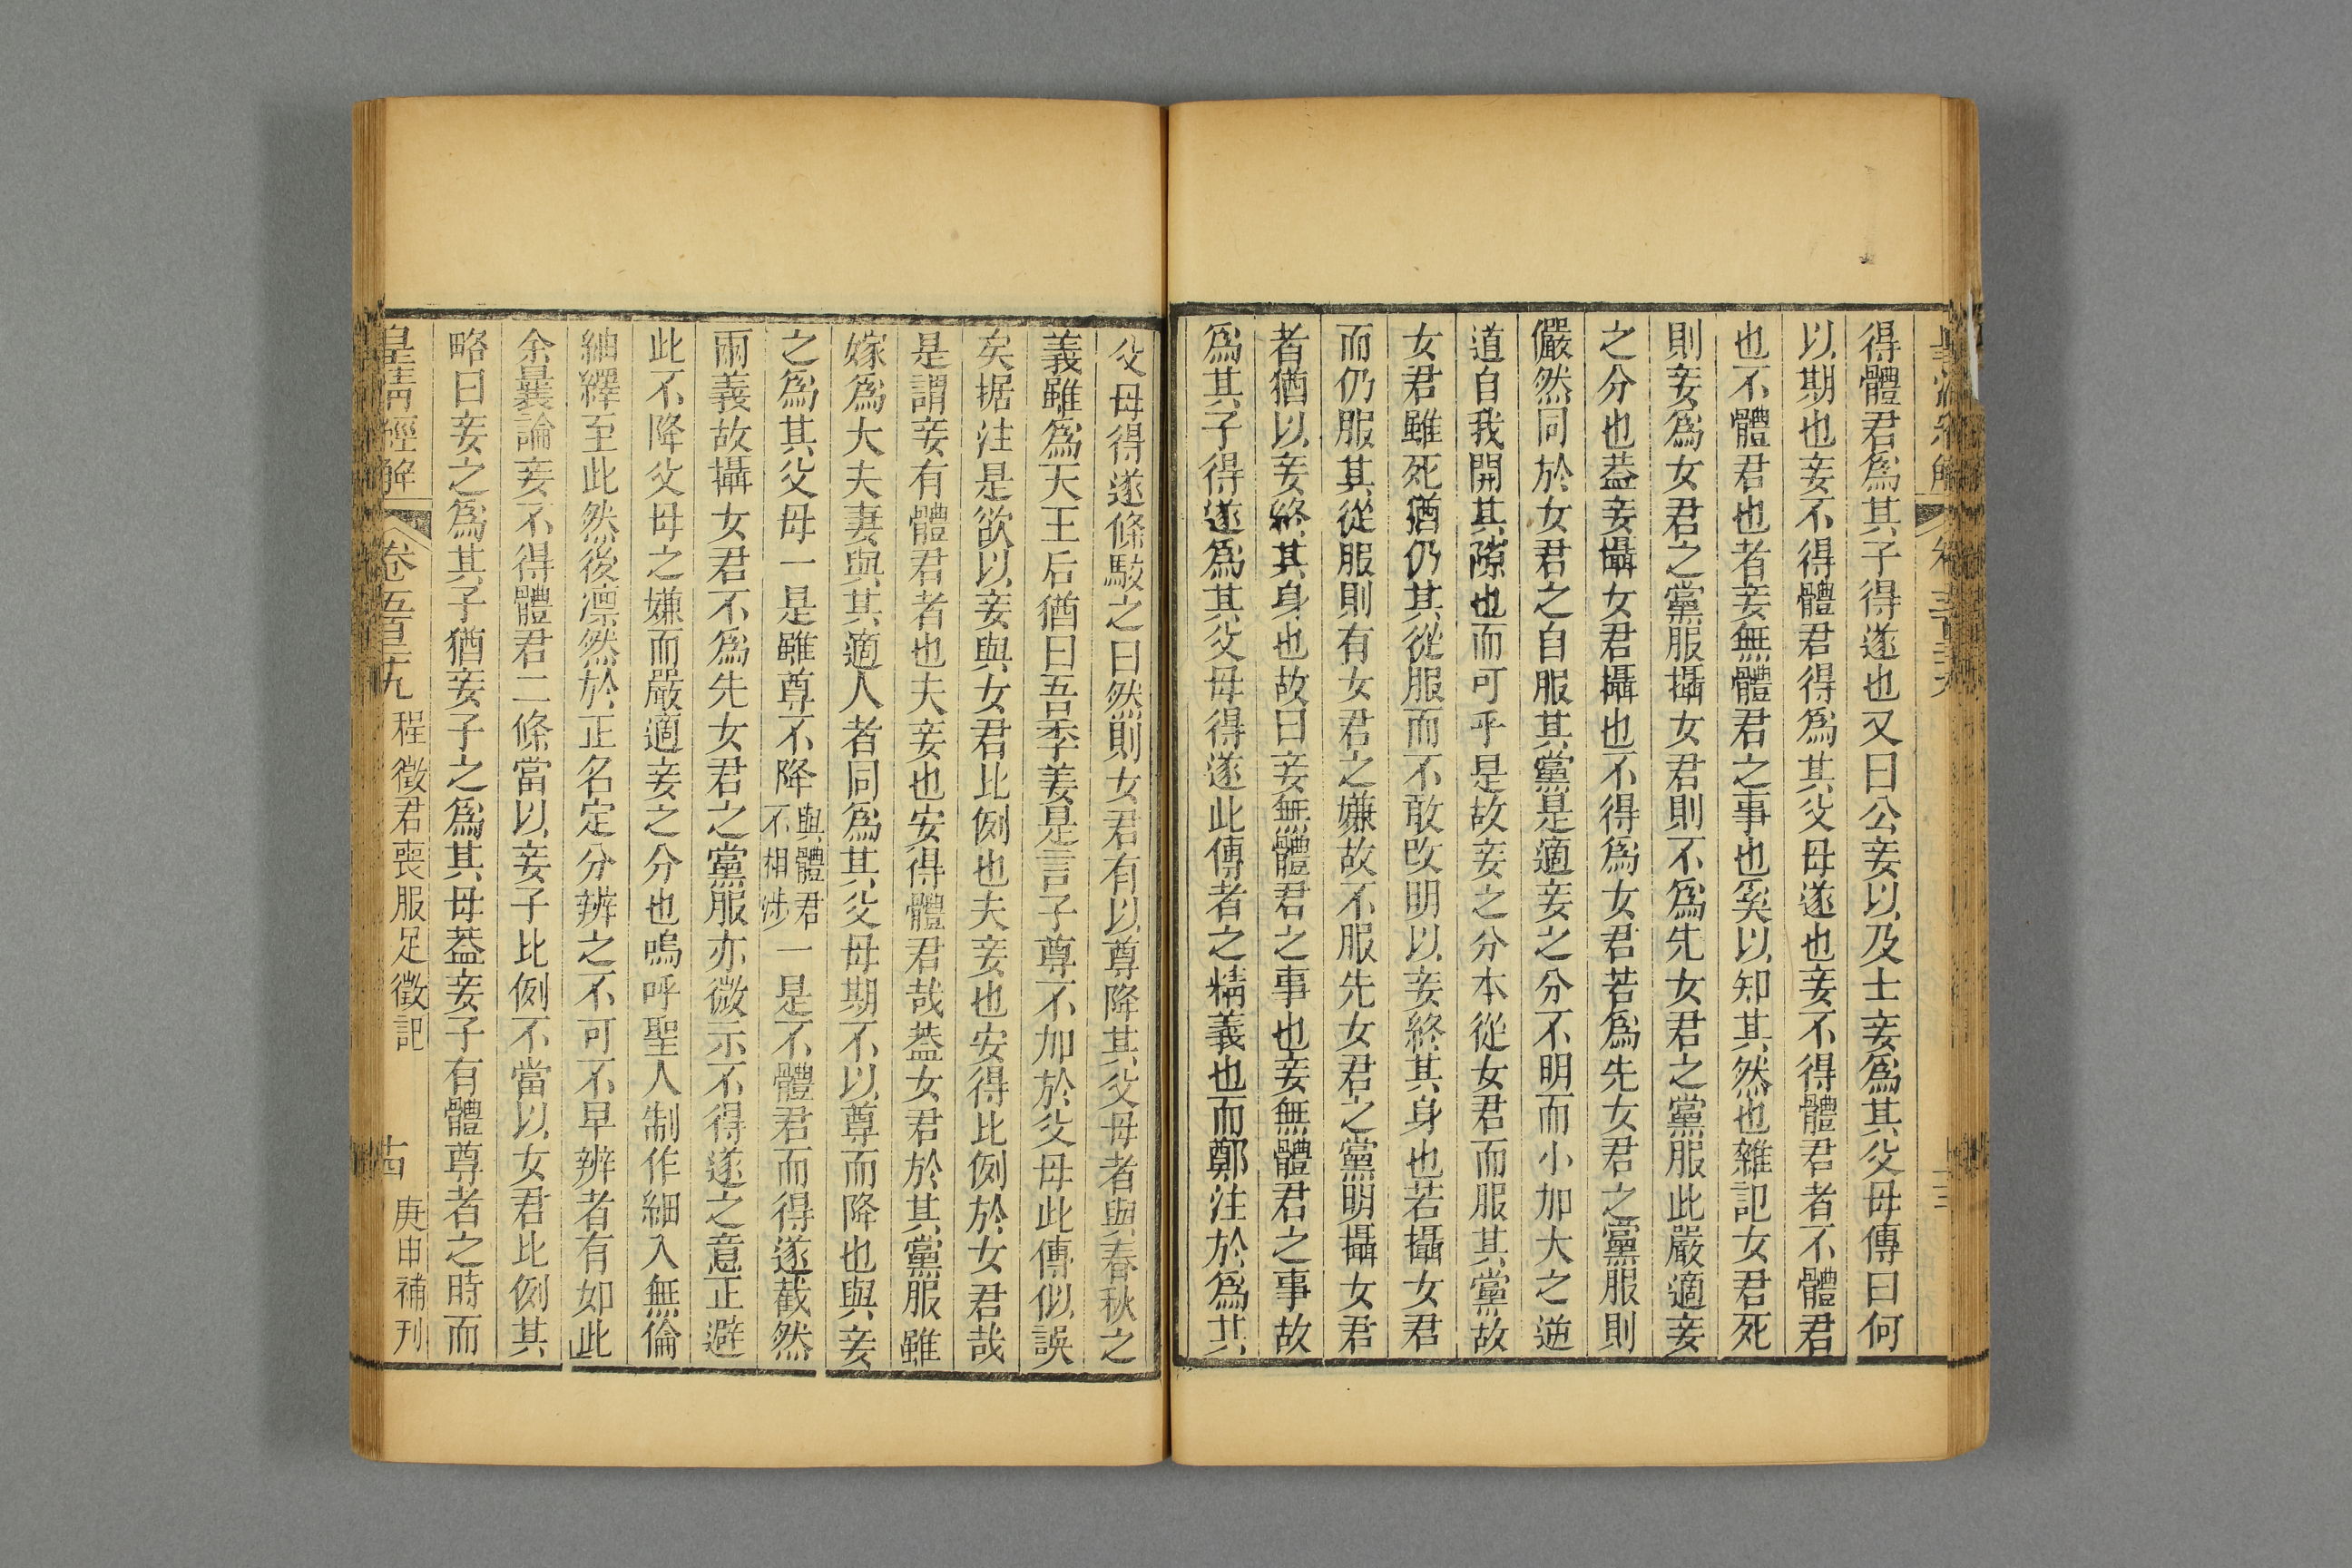 得體君爲其子得遂也又曰公妾以及士妾爲其父母傳曰何
以期也妾不得體君得爲其父母遂也妾不得體君者不體君
也不體君也者妾無體君之事也奚以知其然也雜記女君死
則妾爲女君之黨服攝女君則不爲先女君之黨服此嚴適妾
之分也葢妾攝女君攝也不得爲女君若爲先女君之黨服則
儼然同於女君之自服其黨是適妾之分不明而小加大之逆
道自我開其隙也而可乎是故妾之分本從女君而服其黨故
女君雖死猶仍其從服而不敢改明以妾終其身也若攝女君
而仍服其從服則有女君之嫌故不服先女君之黨明攝女君
者猶以妾終其身也故曰妾無體君之事也妾無體君之事故
爲其子得遂爲其父母得遂此傳者之精義也而鄭注於爲其
父母得遂條駁之曰然則女君有以尊降其父母者與春秋之
義雖爲天王后猶曰吾季姜是言子尊不加於父母此傳似誤
矣据注是欲以妾與女君比例也夫妾也安得比例於女君哉
是謂妾有體君者也夫妾也安得體君哉葢女君於其黨服雖
嫁爲大夫妻與其適人者同爲其父母期不以尊而降也與妾
之爲其父母一是雖尊不降與體君不相涉一是不體君而得遂截然
兩義故攝女君不爲先女君之黨服亦微示不得遂之意正避
此不降父母之嫌而嚴適妾之分也嗚呼聖人制作細入無倫
紬繹至此然後凛然於正名定分辨之不可不早辨者有如此
余曩論妾不得體君二條當以妾子比例不當以女君比例其
略曰妾之爲其子猶妾子之爲其母葢妾子有體尊者之時而
皇清經解 卷五百三九 程徵君喪服足徵記 十四 庚申補刊